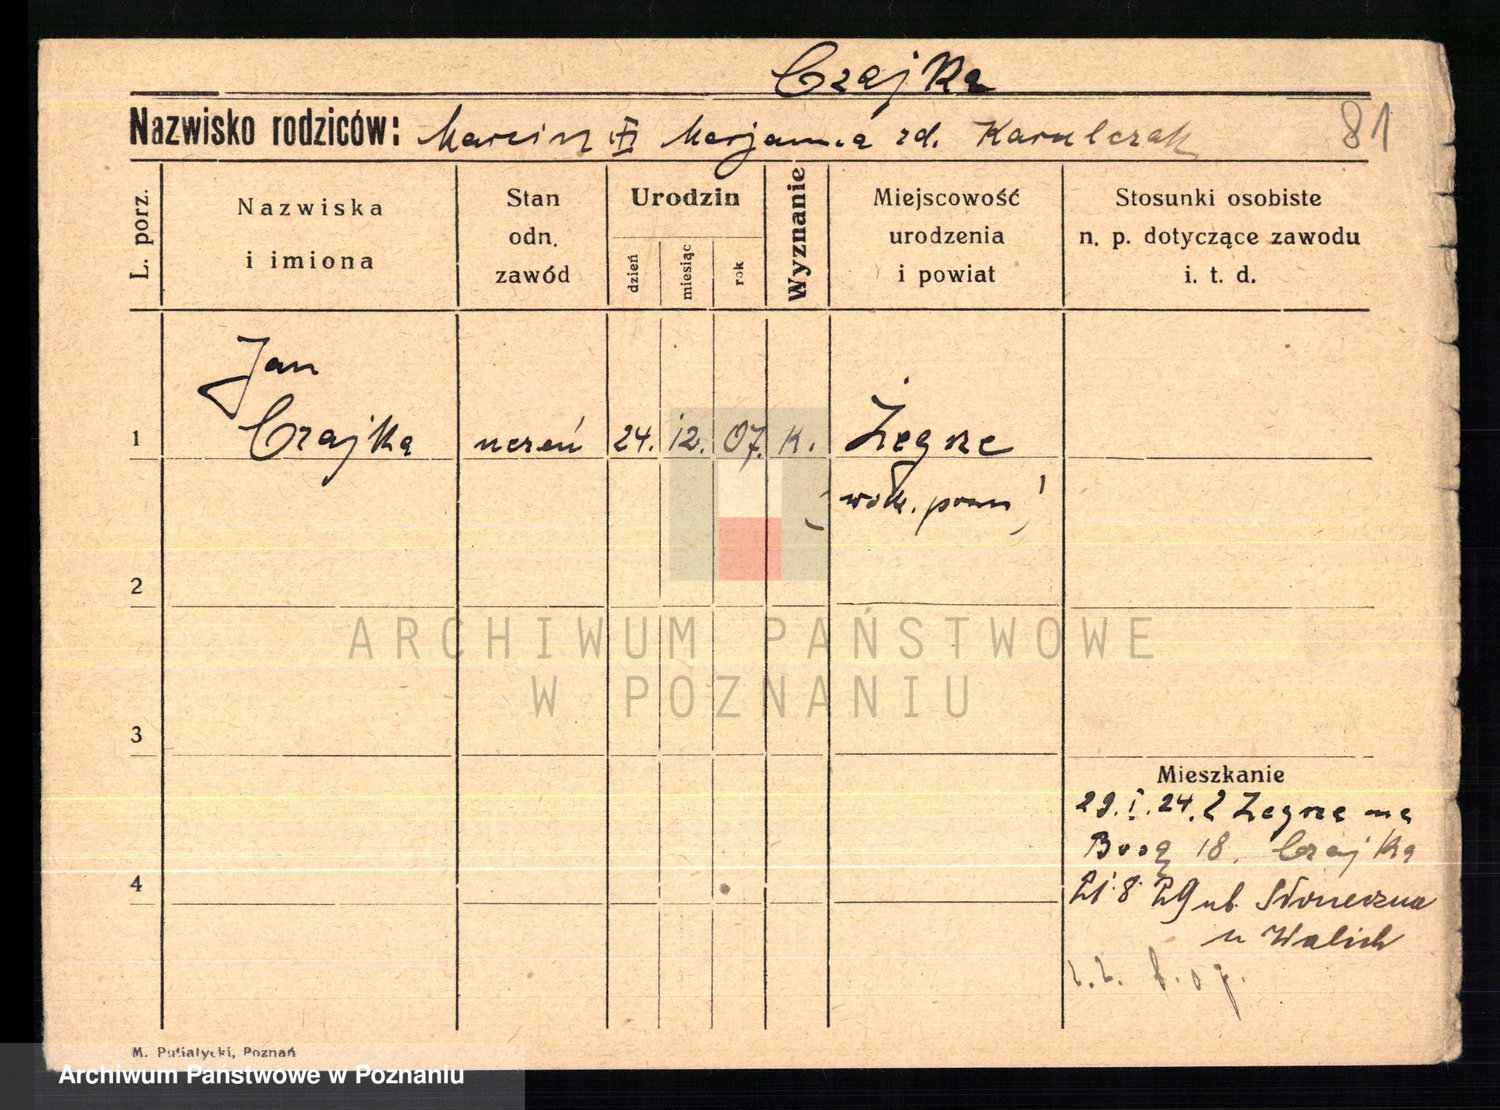 Czajka
Nazwisko rodziców: Marcin i Marjanna zd. Karulczak
81
L. porz.
Nazwiska
i imiona
Stan
odn.
zawód
Urodzin
dzień
miesiąc
rok
Wyznanie
Miejscowość
urodzenia
i powiat
Stosunki osobiste
n. p. dotyczące zawodu
i. t. d.
Jan
1 Czajka uczeń 24. 12. 07. K. Żegrze
2
3
4
Mieszkanie
29. I. 24. Z Żegrze na
18. Czajka
Słoneczna
u Walich
ARCHIWUM PAŃSTWOWE
W POZNANIU
M. Putiatycki, Poznań
Archiwum Państwowe w Poznaniu